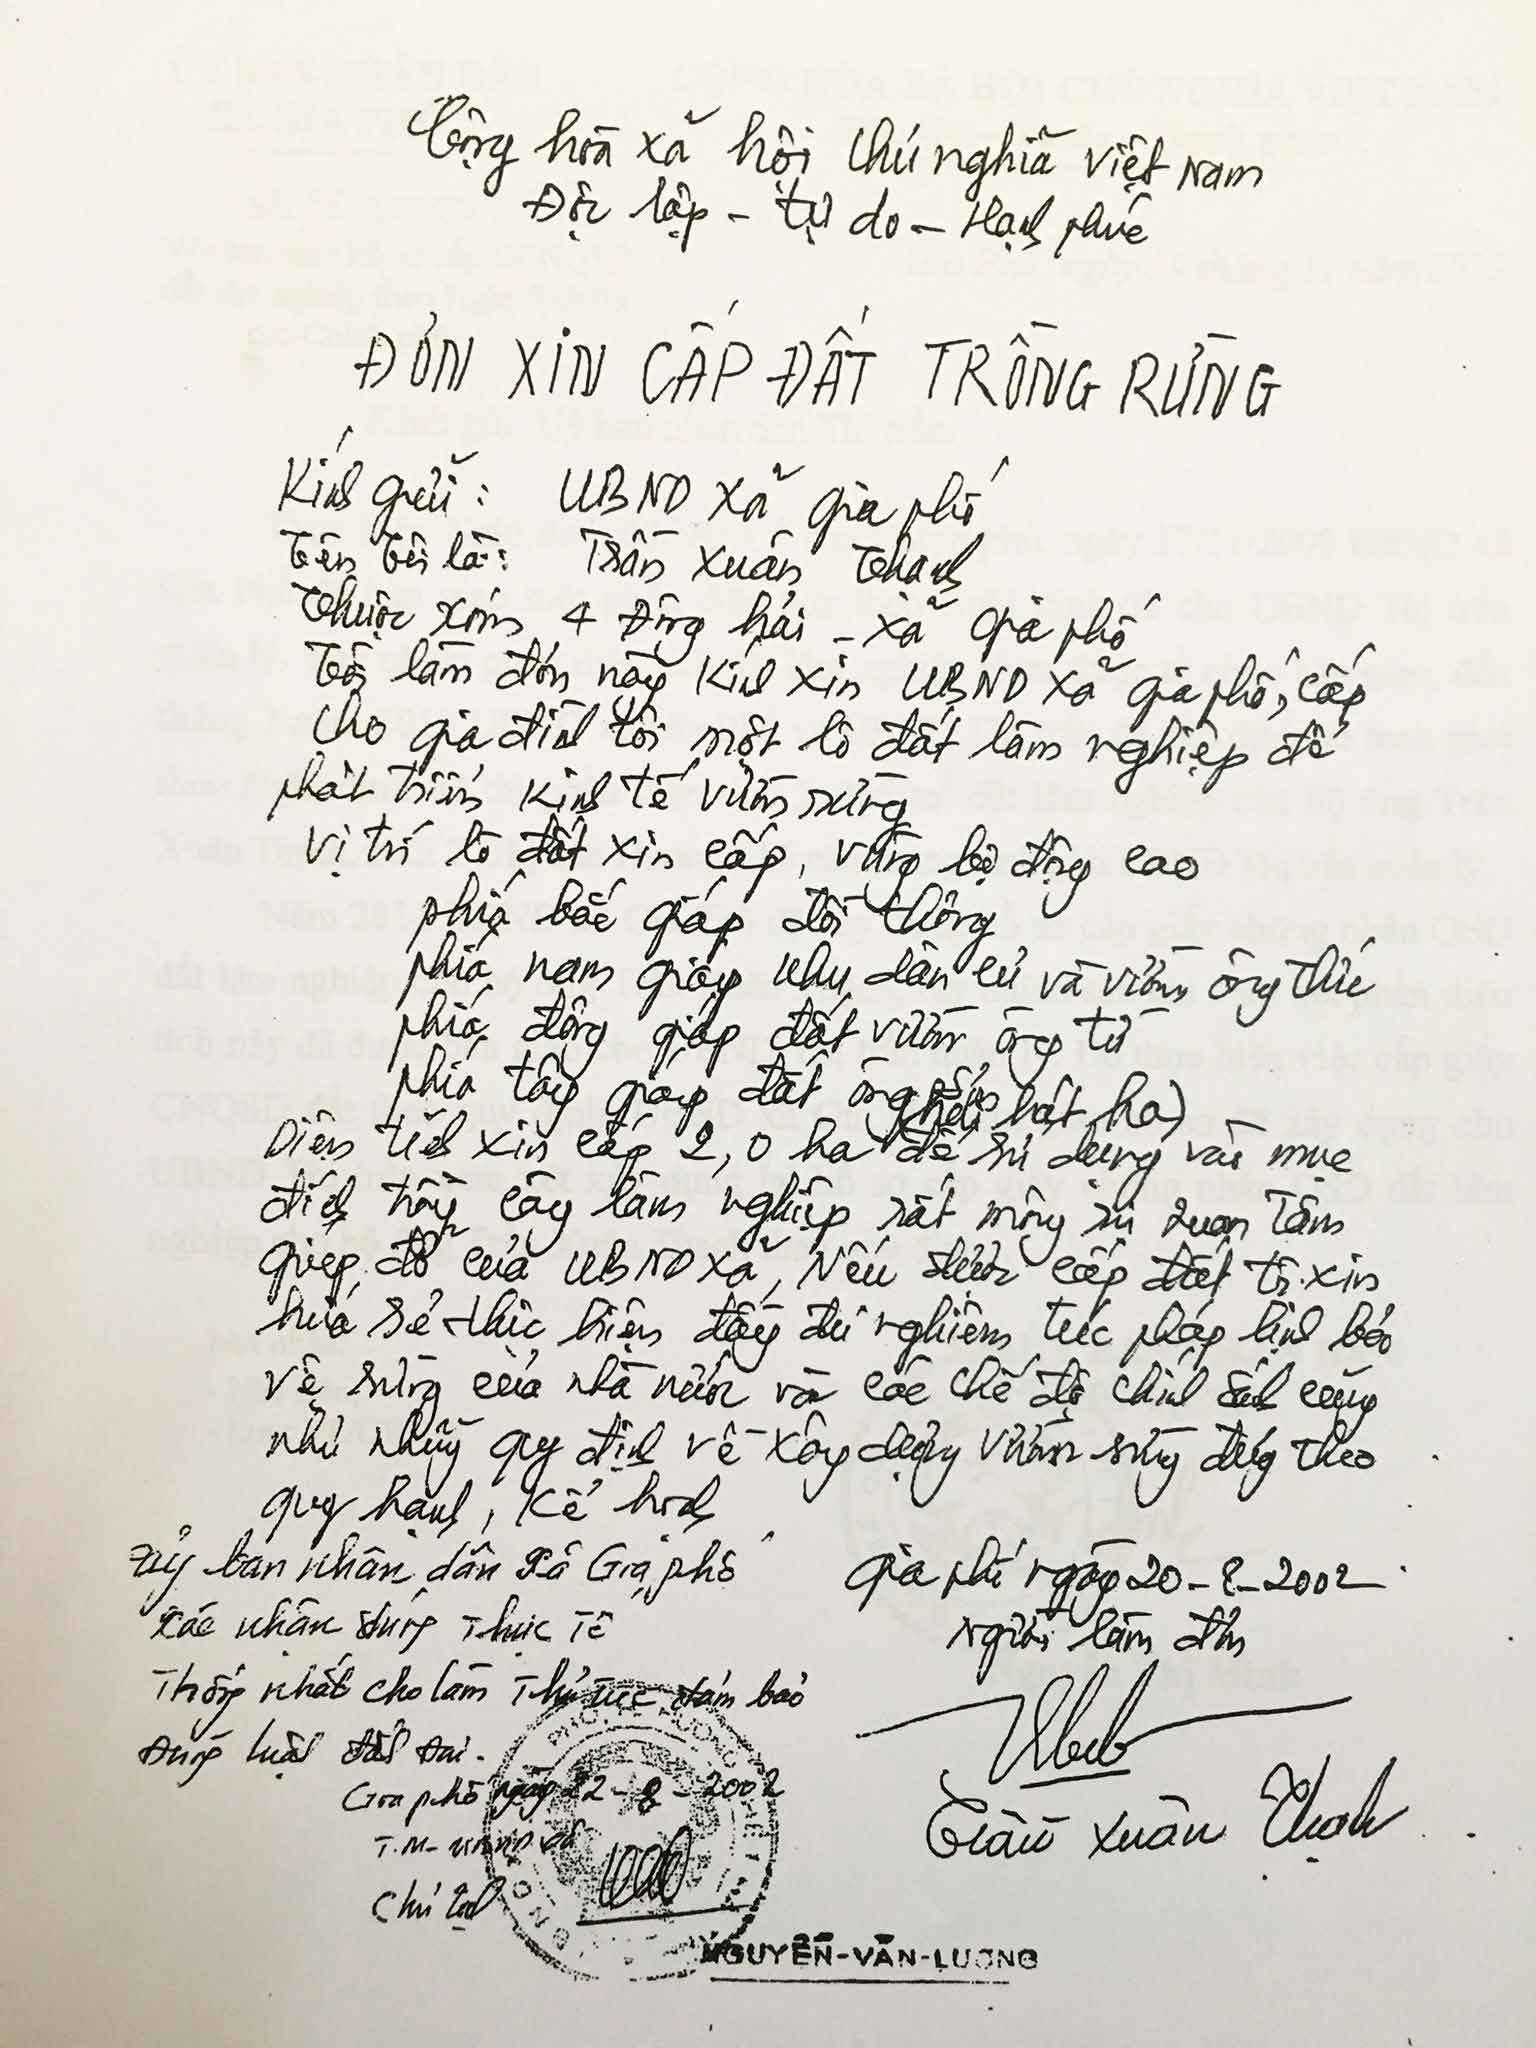 Cộng hòa xã hội chủ nghĩa việt Nam
Độc lập - tự do - Hạnh phúc
ĐƠN XIN CẤP ĐẤT TRỒNG RỪNG
Kính gửi: UBND xã gia phố
Tên tôi là: Trần Xuân Thạnh
Thuộc xóm 4 Đông hải - xã gia phố
Tôi làm đơn này kính xin UBND xã gia phố, cấp
cho gia đình tôi một lô đất lâm nghiệp để
phát triển kinh tế vườn rừng
Vị trí lô đất xin cấp, vùng bộ động cao
phía bắc giáp đồi thông
phía nam giáp khu dân cư và vườn ông thức
phía đông giáp đất vườn ông tứ
phía tây giáp đất ông
(hai hát ha)
Diện tích xin cấp 2,0 ha để sử dụng vào mục
đích trồng cây lâm nghiệp rất mong sự quan tâm
giúp đỡ của UBND xã, Nếu được cấp đất tôi xin
hứa sẽ thực hiện đầy đủ nghiêm túc pháp lệnh bảo
vệ rừng của nhà nước và các chế độ chính sách cũng
như những quy định về xây dựng vườn rừng đúng theo
quy hạnh, kế hoạch
Ủy ban nhân dân xã Gia phố
Xác nhận đúng thực tế
Thống nhất cho làm thủ tục đảm bảo
Đúng luật đất đai.
Gia phố ngày 22-8-2002
T.M-
Chủ tịch
NGUYỄN-VĂN-LƯƠNG
gia phố ngày 20-8-2002
Người làm đơn
Trần Xuân Thạnh